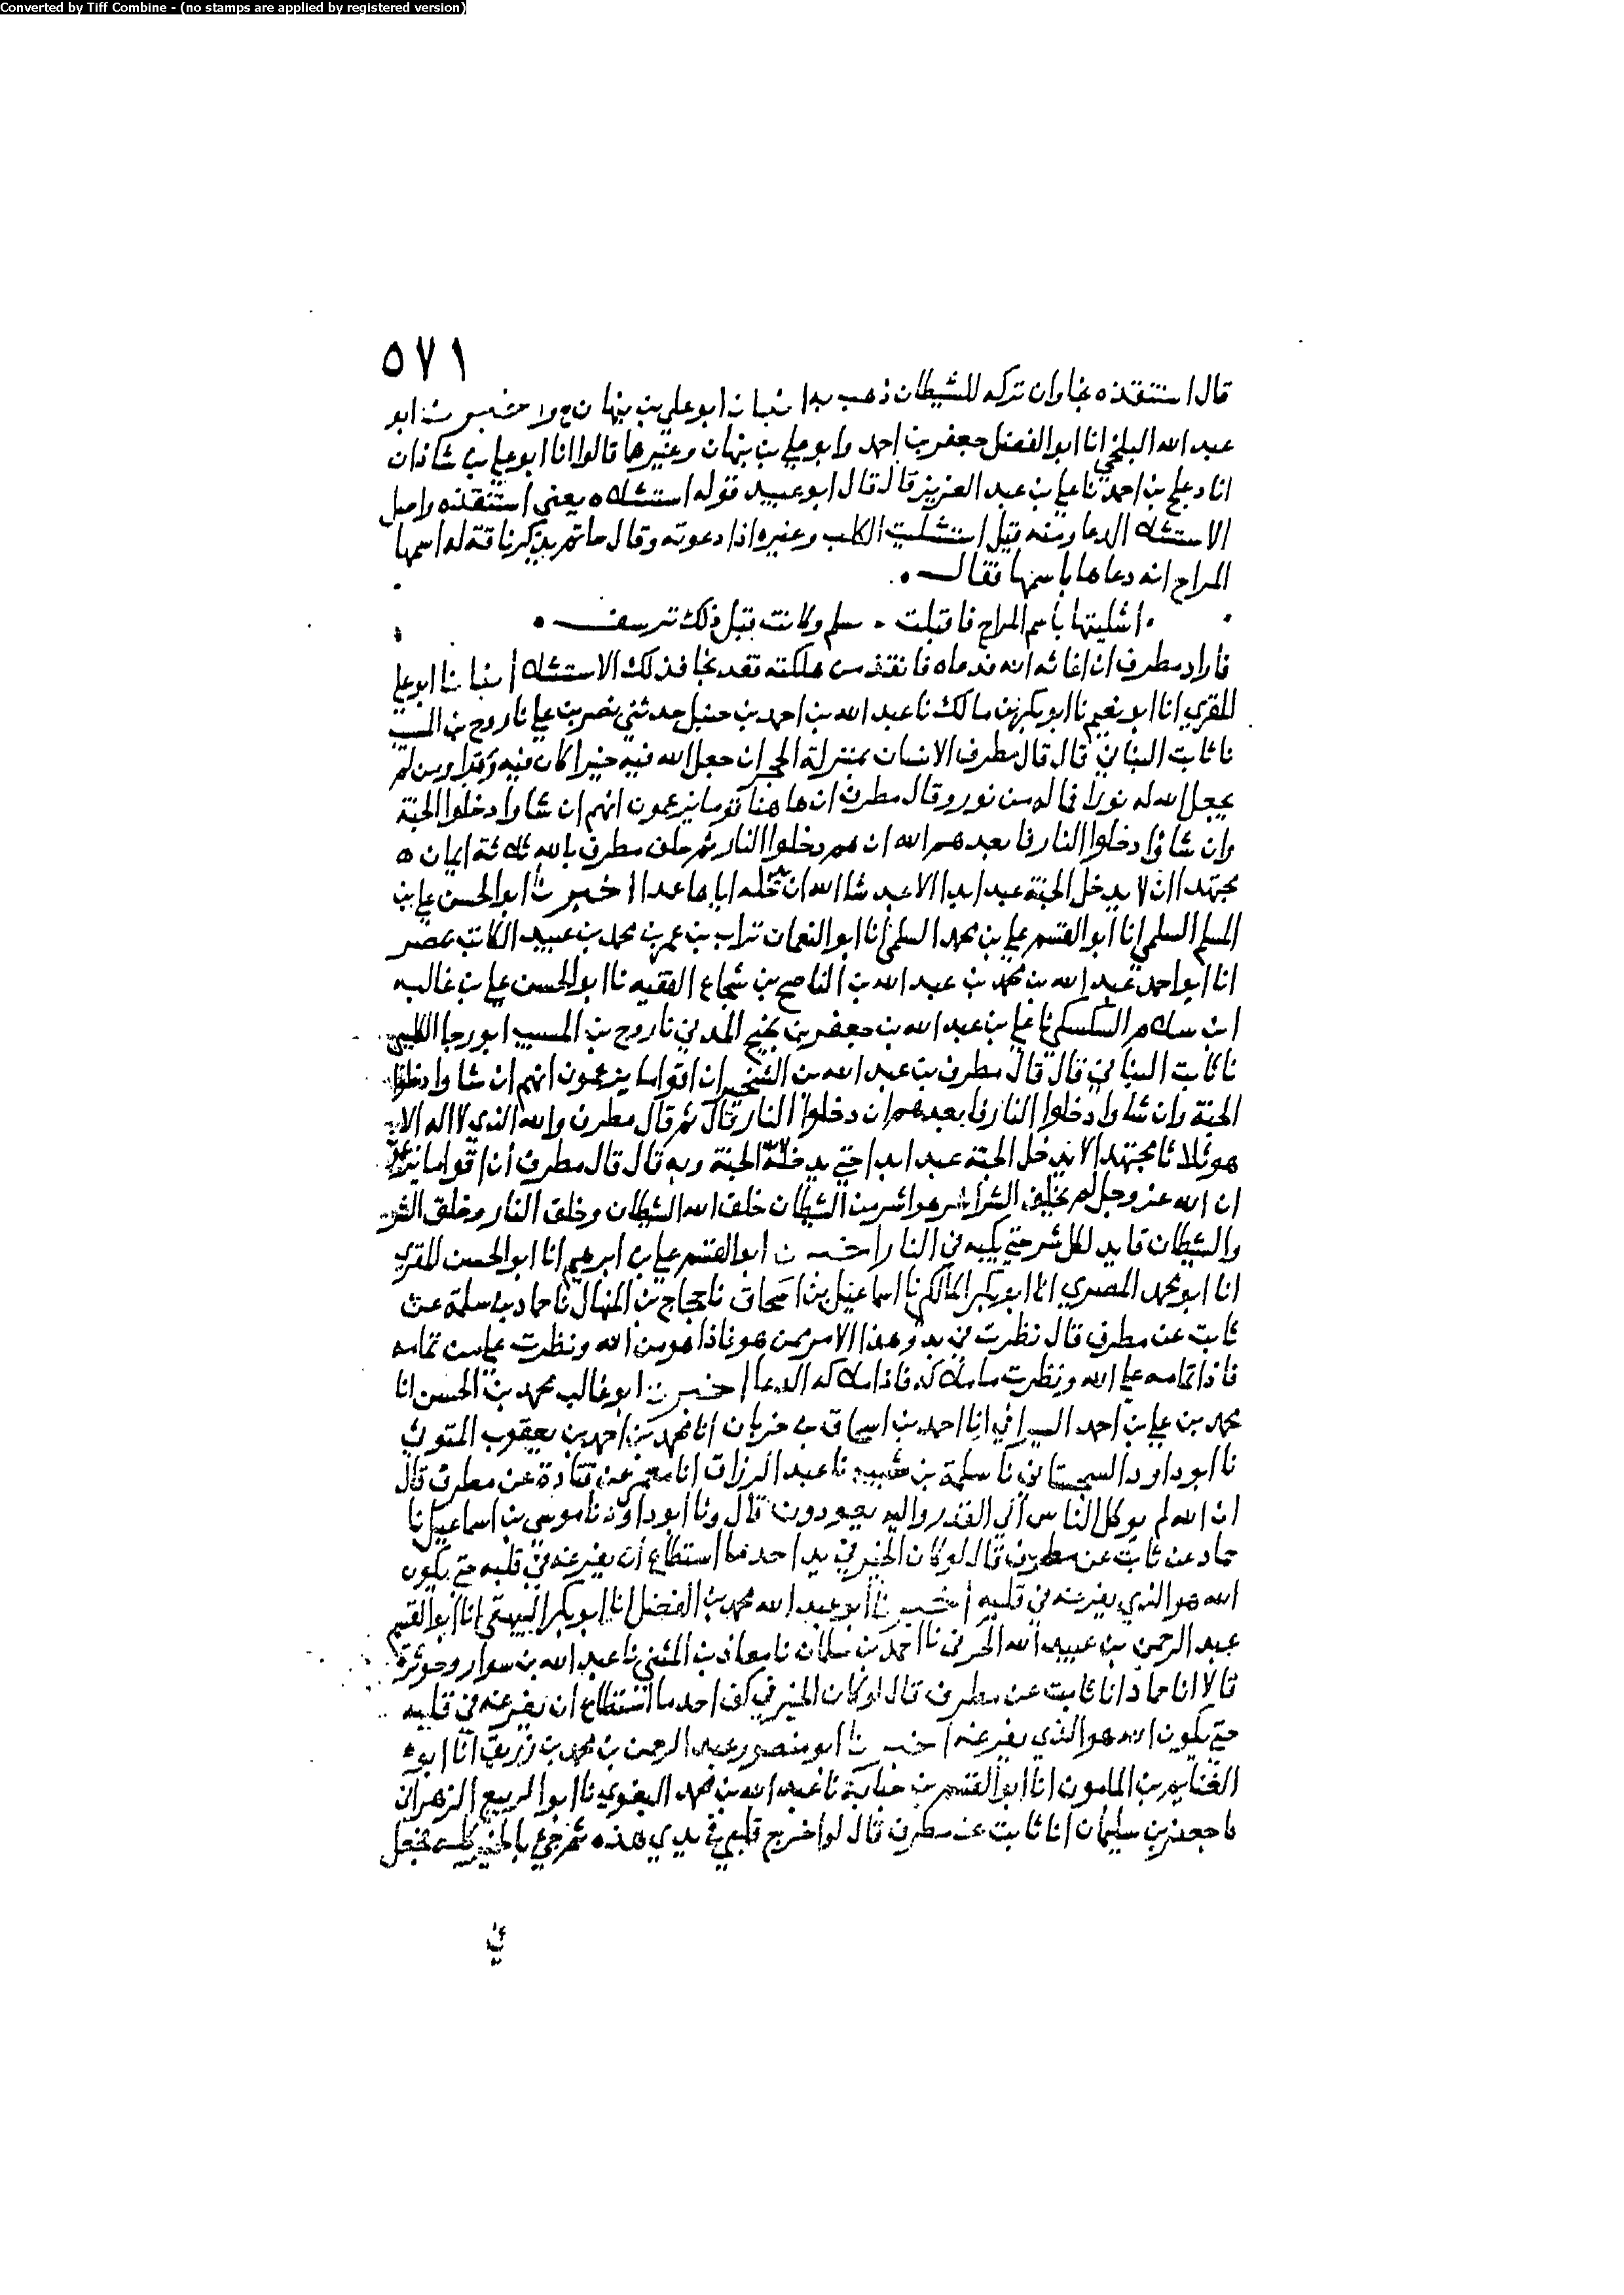 Converted by Tiff Combine - (no stamps are applied by registered version)
٥٧١
قال استنقذه نجا وان تركه للشيطان ذهب به انبانا ابو علي بن نبهان ح واخبرنا ابو
عبد الله البلخي انا ابو الفضل جعفر بن احمد وابو علي بن نبهان وغيرها قالوا انا ابو علي بن شاذان
انا دعلج بن احمد نا علي بن عبد العزيز قال قال ابو عبيد قوله استشلاه يعني استنقذه واصل
الاستشلاء الدعا ومنه قيل استشليت الكلب وغيره اذا دعوته وقال حاتم يذكر ناقة له اسمها
المراح انه دعاها باسمها فقال
اشليتها باسم المراح فاقبلت سلم وكانت قبل ذلك ترسف
فاراد مطرف ان اغاثه الله فدعاه فانقذ من هلكته فقد نجا فذلك الاستشلاء انبانا ابو علي
المقري انا ابو نعيم نا ابو بكر بن مالك نا عبد الله بن احمد بن حنبل حدثني نصر بن علي نا روح بن المسيب
نا ثابت البناني قال قال مطرف الانسان بمنزلة الحجر ان جعل الله فيه خيرا كان فيه وقرا ومن لم
يجعل الله له نورا فما له من نور وقال مطرف ان ها هنا قوما يزعمون انهم ان شاوا دخلوا الجنة
وان شاوا دخلوا النار فابعدهم الله ان هم دخلوا النار ثم حلف مطرف بالله ثلاثة ايمان
مجتهدا ان لا يدخل الجنة عبد ابدا الا عبد شا الله ان يدخله اياها عمدا اخبرنا ابو الحسن علي بن
المسلم السلمي انا ابو القسم علي بن محمد السلمي انا ابو النعمان تراب بن عمر بن محمد بن عبيد الكاتب بمصر
انا ابو احمد عبد الله بن محمد بن عبد الله بن الناصح بن شجاع الفقيه نا ابو الحسن علي بن غالب
ابن سلام السكسكي نا علي بن عبد الله بن جعفر بن نجيح المدني نا روح بن المسيب ابو رجا الكلبي
نا ثابت البناني قال قال مطرف بن عبد الله بن الشخير ان اقواما يزعمون انهم ان شاوا دخلوا
الجنة وان شاوا دخلوا النار فابعدهم ان دخلوا النار قال ثم قال مطرف والله الذي لا اله الا
هو ثلاثا مجتهدا لا يدخل الجنة عبد ابدا حتى يدخله الله الجنة وبه قال قال مطرف ان اقواما يزعمون
ان الله عز وجل لم يخلق الشر اشر هو اشر من الشيطان خلق الله الشيطان وخلق النار وخلق الشر
والشيطان قايد لكل شر حتى يكبه في النار اخبرنا ابو القسم علي بن ابرهيم انا ابو الحسن المقري
انا ابو محمد المصري انا ابو بكر المالكي نا اسماعيل بن اسحاق نا حجاج بن المنهال نا حماد بن سلمة عن
ثابت عن مطرف قال نظرت في بدو هذا الامر ممن هو فاذا هو من الله ونظرت على من تمامه
فاذا تمامه على الله ونظرت ما ملاكه فاذا ملاكه الدعا اخبرنا ابو غالب محمد بن الحسن انا
محمد بن علي بن احمد السيرافي انا احمد بن اسحاق بن خربان انا محمد بن احمد بن يعقوب المتوثي
نا ابو داود السجستاني نا سلمة بن شبيب نا عبد الرزاق انا معمر عن قتادة عن مطرف قال
ان الله لم يوكل الناس الى القدر واليه يعودون قال ونا ابو داود نا موسى بن اسماعيل نا
حماد عن ثابت عن مطرف قال لو كان الخير في يد احد ما استطاع ان يفرغه في قلبه حتى يكون
الله هو الذي يفرغه في قلبه اخبرنا ابو عبد الله محمد بن الفضل انا ابو بكر البيهقي انا ابو القسم
عبد الرحمن بن عبيد الله الحرفي نا احمد بن سلمان نا معاذ بن المثنى نا عبد الله بن سوار وحوثرة
قالا انا حماد انا ثابت عن مطرف قال لو كان الخير في كف احد ما استطاع ان يفرغه في قلبه
حتى يكون الله هو الذي يفرغه اخبرنا ابو منصور عبد الرحمن بن محمد بن زريق انا ابو
الغنايم بن المامون انا ابو القسم بن حبابة نا عبد الله بن محمد البغوي نا ابو الربيع الزهراني
نا جعفر بن سليمان انا ثابت عن مطرف قال لو اخرج قلبي في يدي هذه ثم جئ بالخير كله فجعل
في